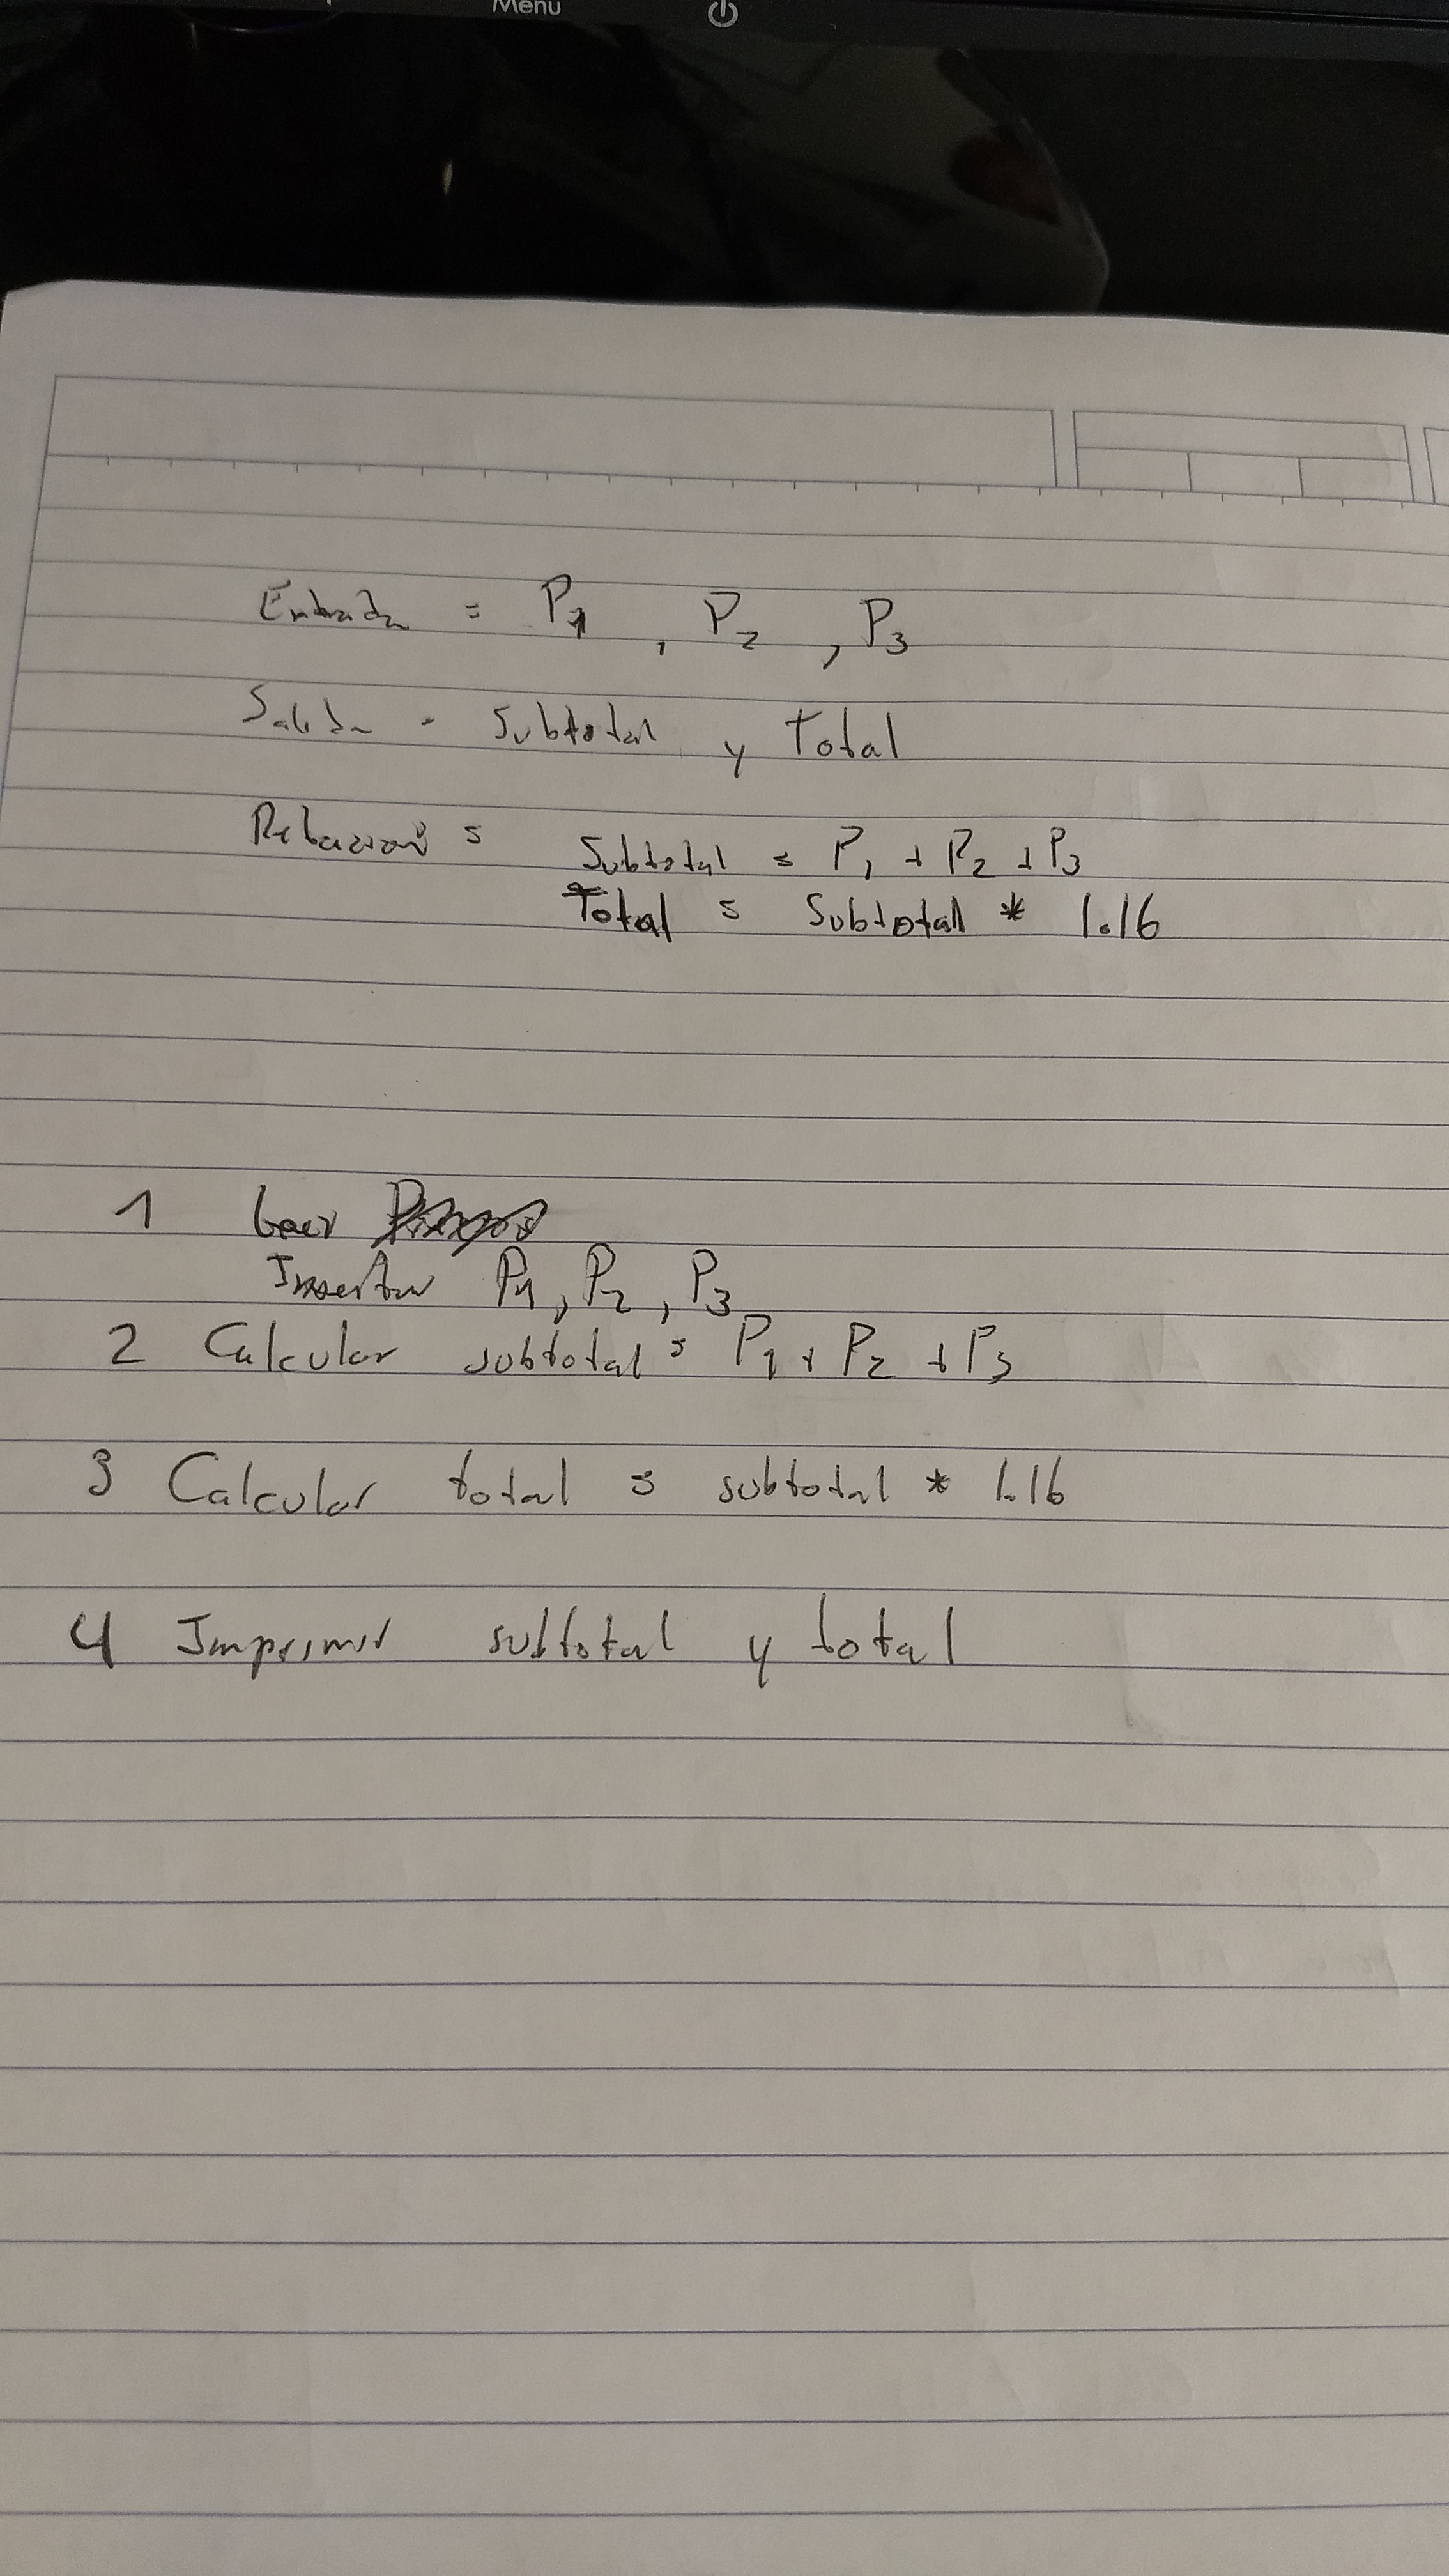 Menu
Entrada = P1, P2, P3
Salida - Subtotal y Total
Relación = Subtotal = P1 + P2 + P3
Total = Subtotal * 1.16
1 Leer
Insertar P1, P2, P3
2 Calcular subtotal = P1 + P2 + P3
3 Calcular total = subtotal * 1.16
4 Imprimir subtotal y total